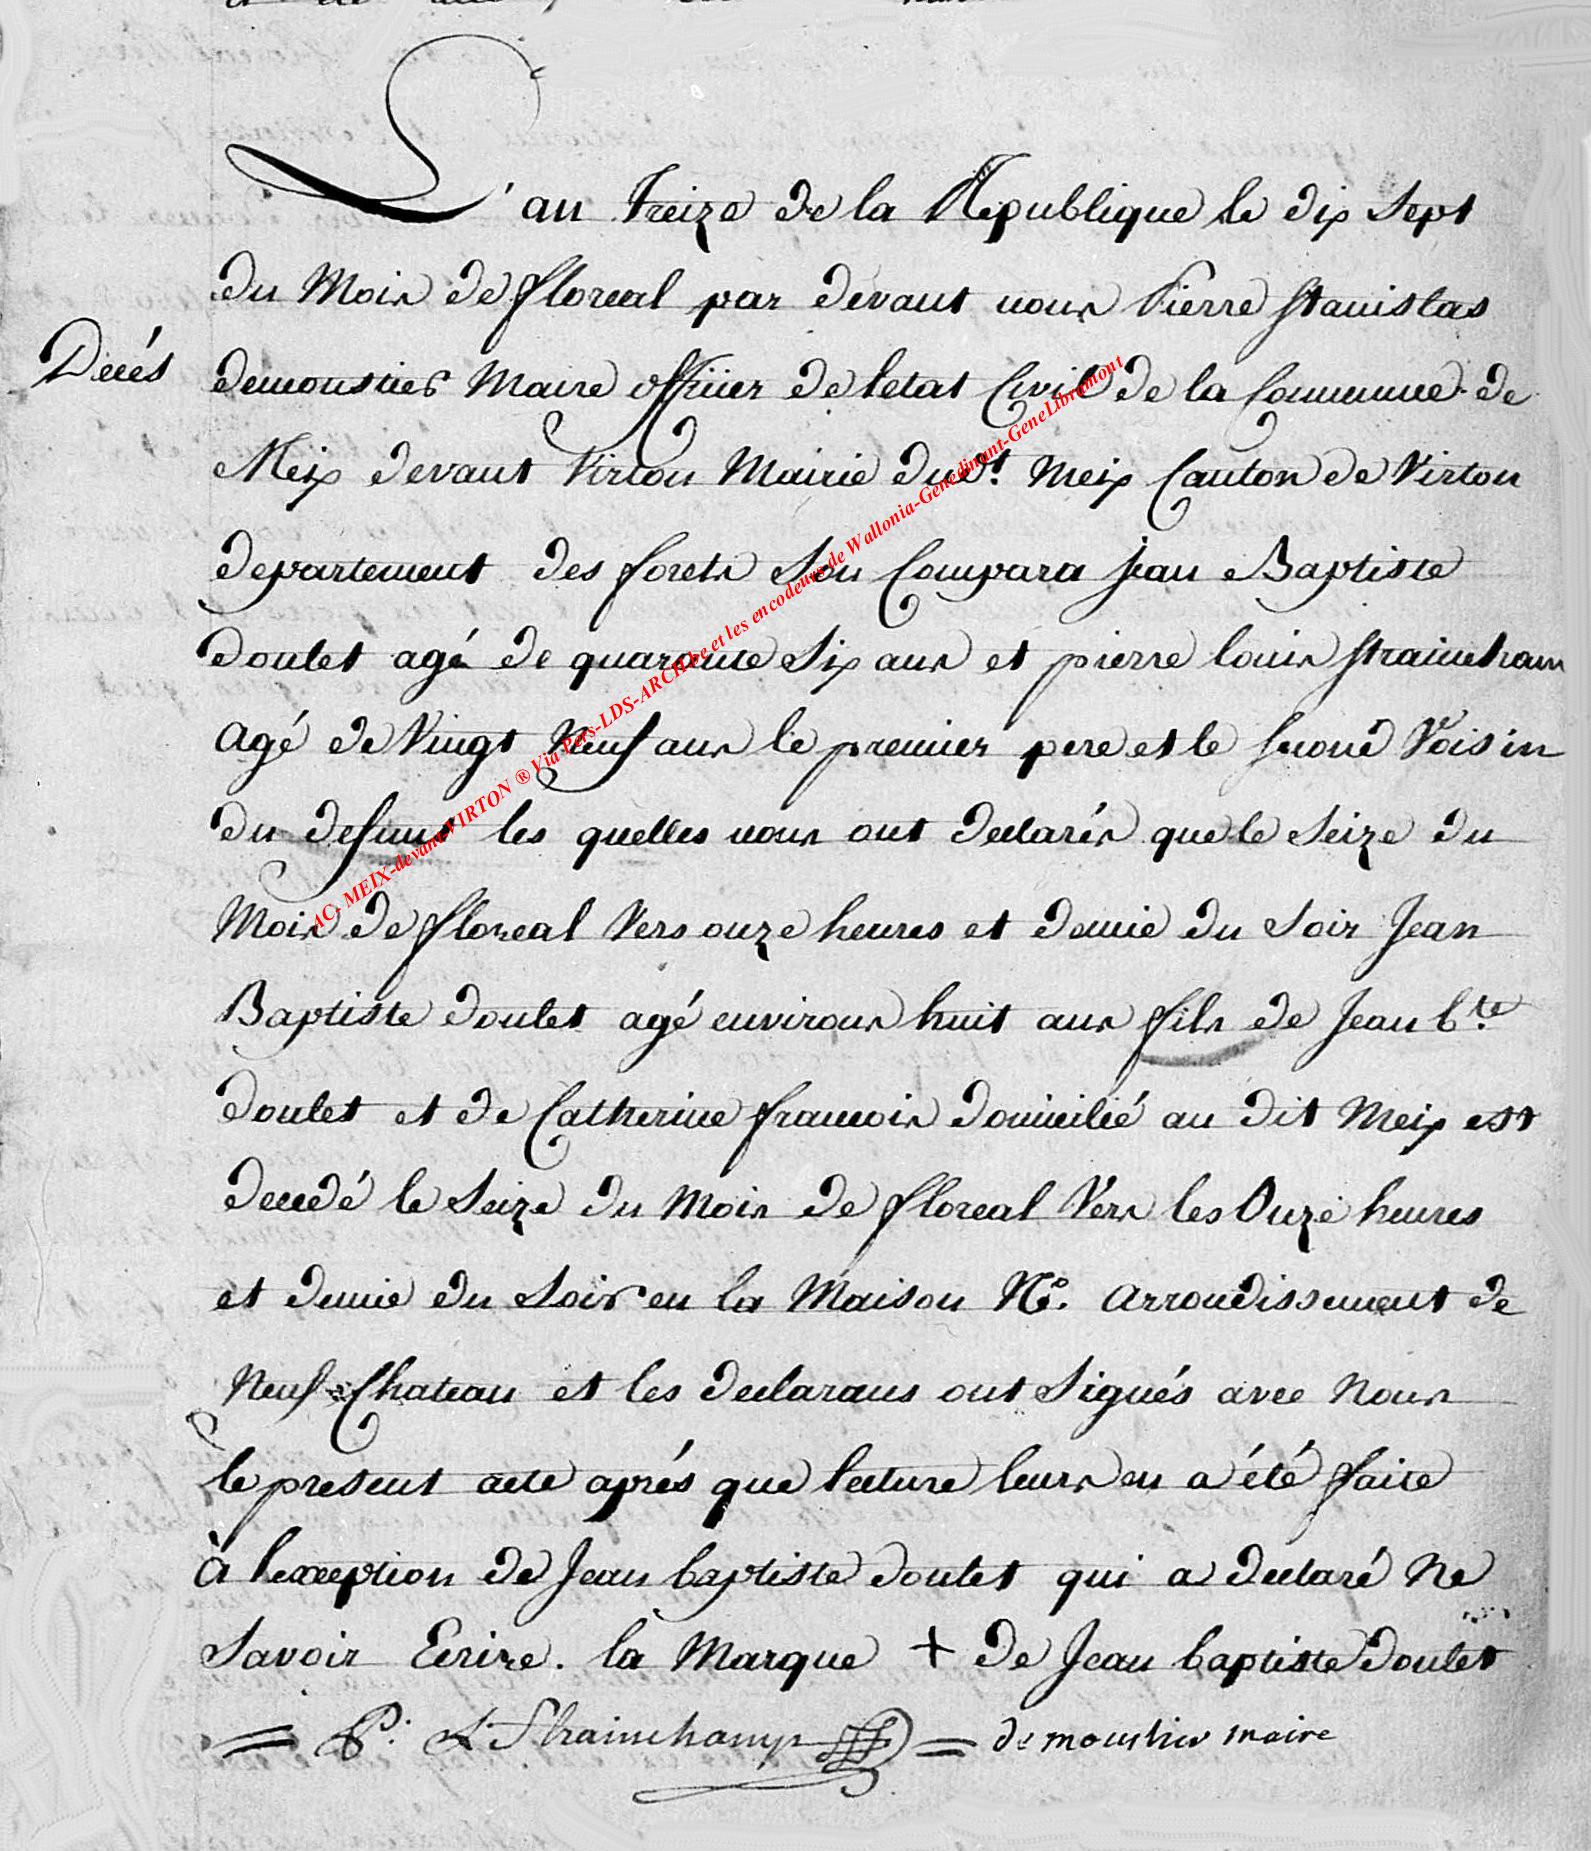 L'an treize de la Republique le dix Sept
du Mois de floreal par devant nous Pierre Stanislas
Decés
demoustier Maire officier de letat Civil de la Commune de
Meix devant Virton Mairie du dt. Meix Canton de Virton
departement des forets Son Compara jean Baptiste
doulet agé de quarante Six ans et pierre louis Straincham
agé de Vingt Neuf ans le premier pere et le second Voisin
du defunt les quelles nous ont declarés que le Seize du
Mois de floreal Vers onze heures et demie du Soir Jean
Baptiste doulet agé environs huit ans fils de Jean bte
doulet et de Catherine francois domicilié au dit Meix est
decedé le Seize du Mois de floreal Vers les Onze heures
et demie du Soir en la Maison No. arrondissement de
Neuf Chateau et les declarans ont Signés avec Nous
le present acte aprés que lecture leurs en a été faite
à lexception de Jean baptiste doulet qui a declaré Ne
Savoir Ecrire. la Marque + de Jean baptiste doulet
= P. L Strainchamp = demoustier maire
AC- MEIX-devant-VIRTON ® Via Pers-LDS-ARCH.be et les encodeurs de Wallonia-Genedinant-GeneLibramont